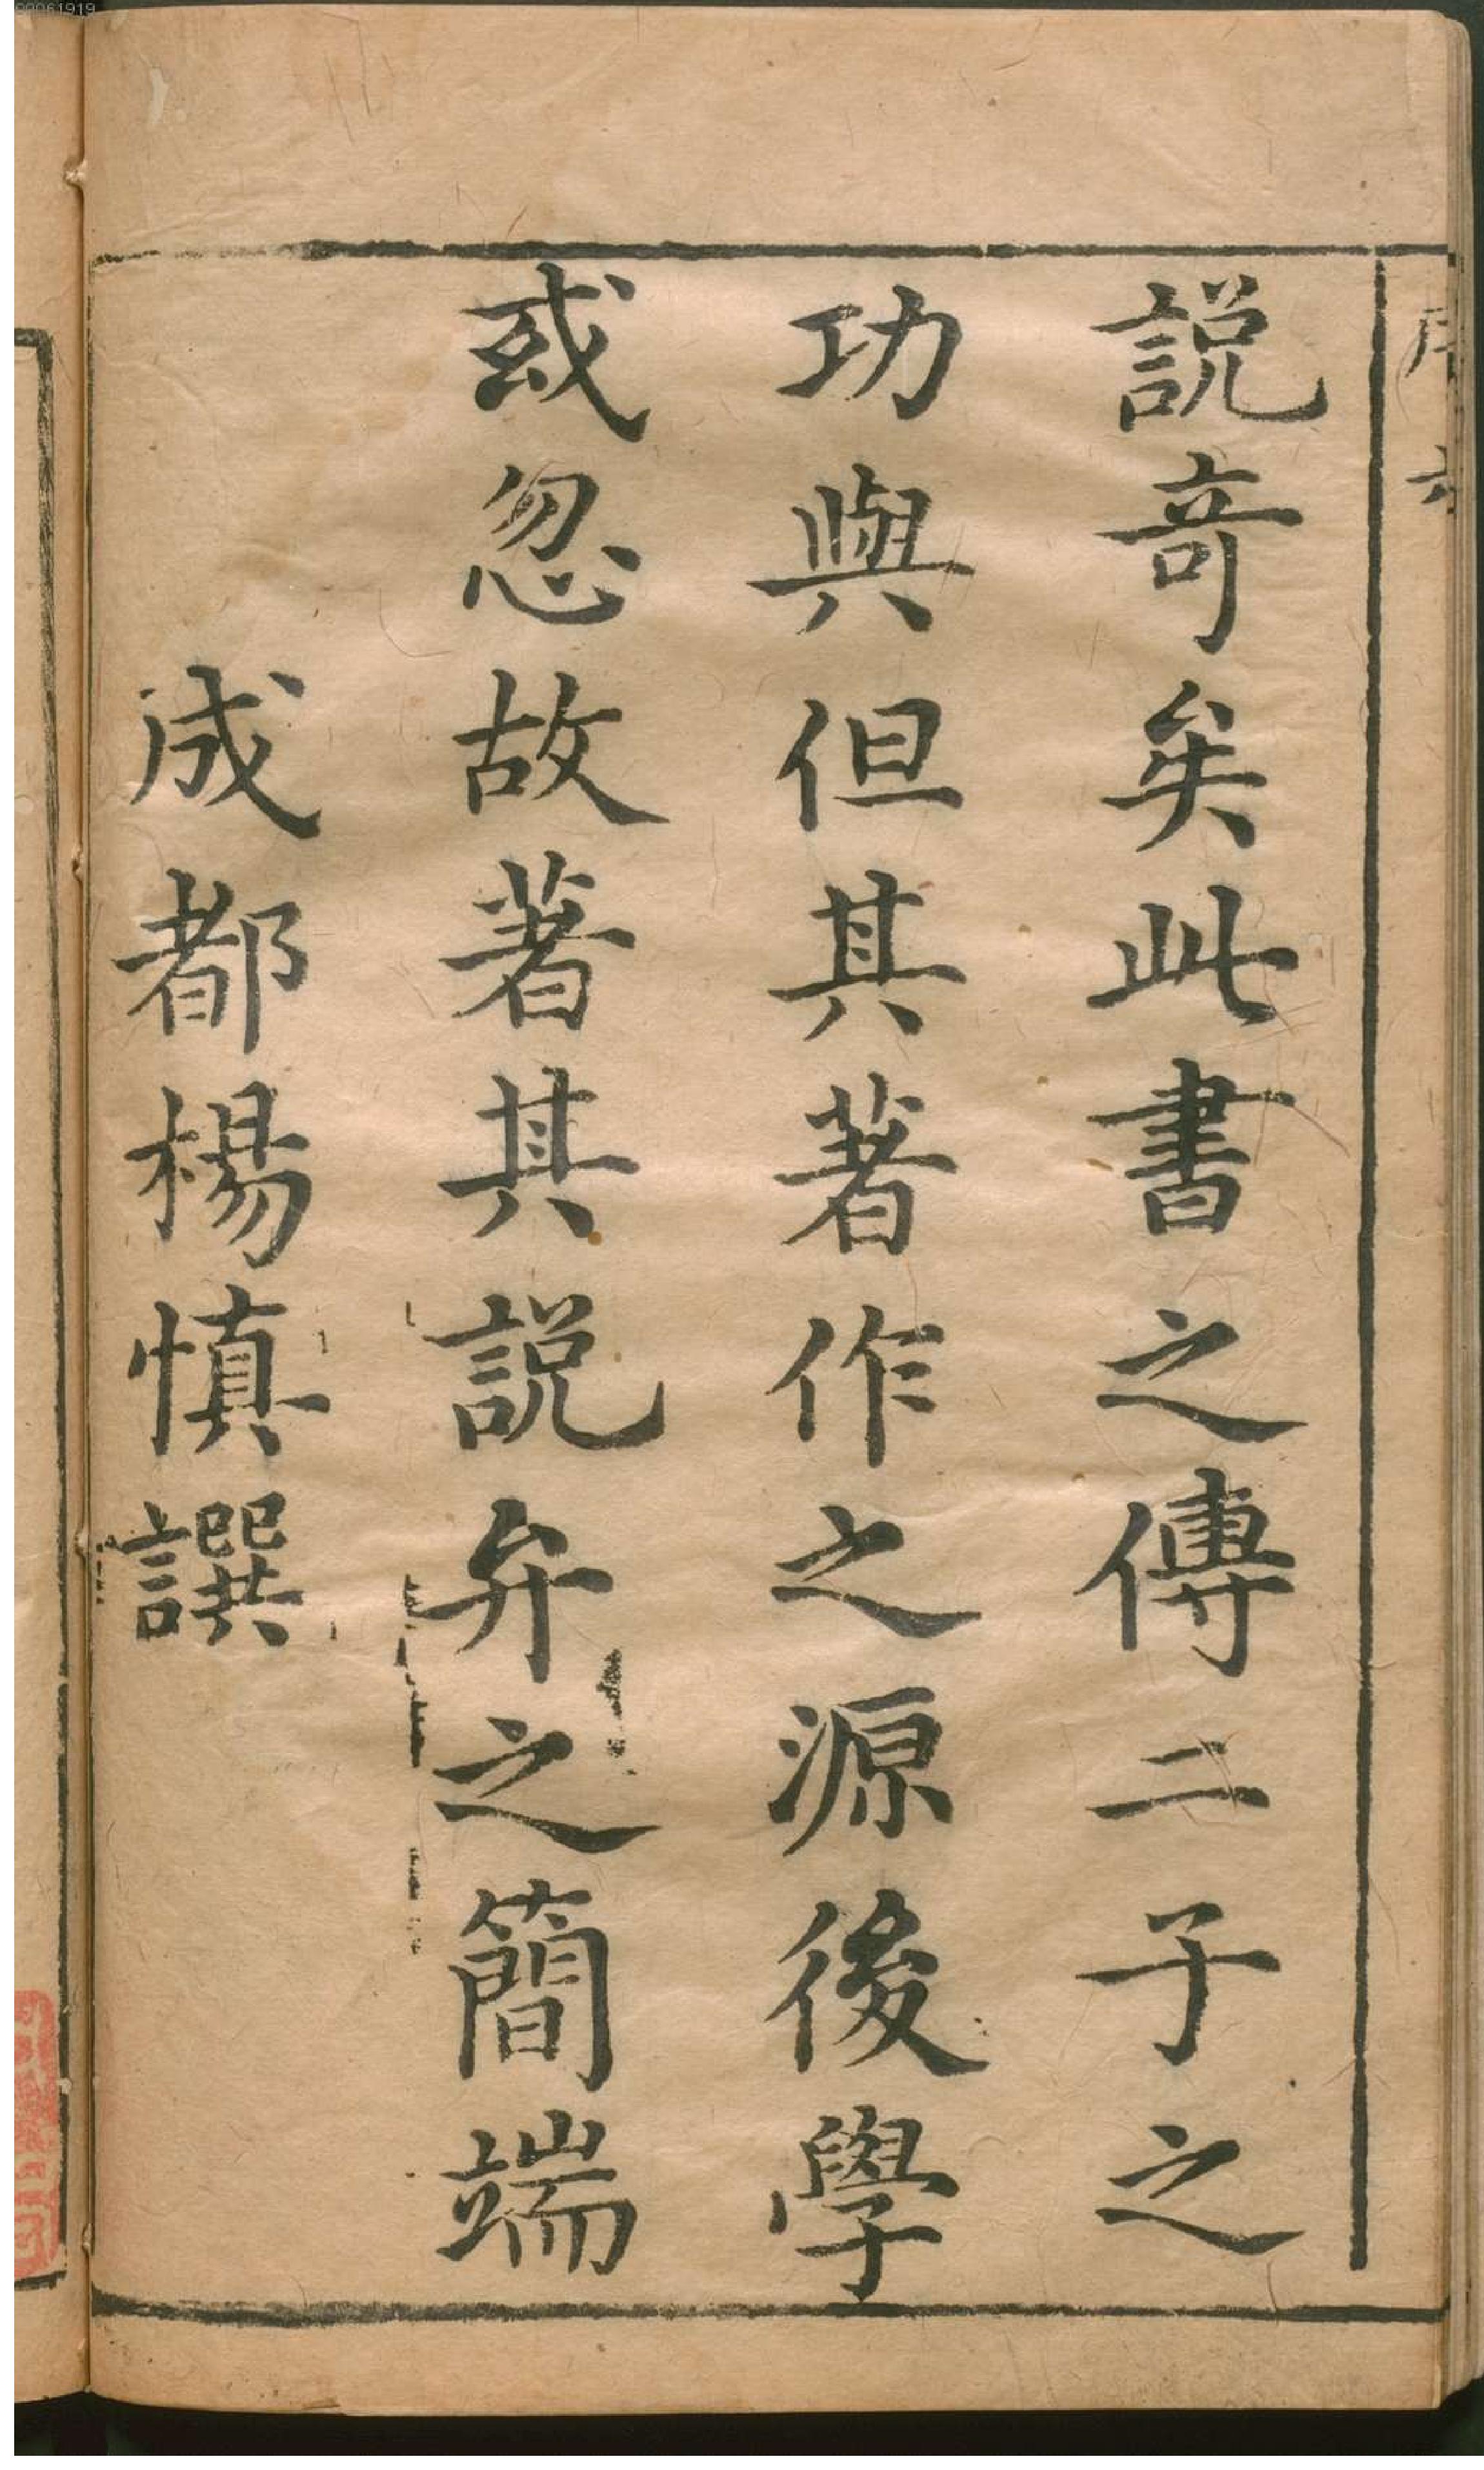 說竒矣此書之傳二子之
功與但其著作之源後學
或忽故著其說弁之簡端
成都楊慎譔